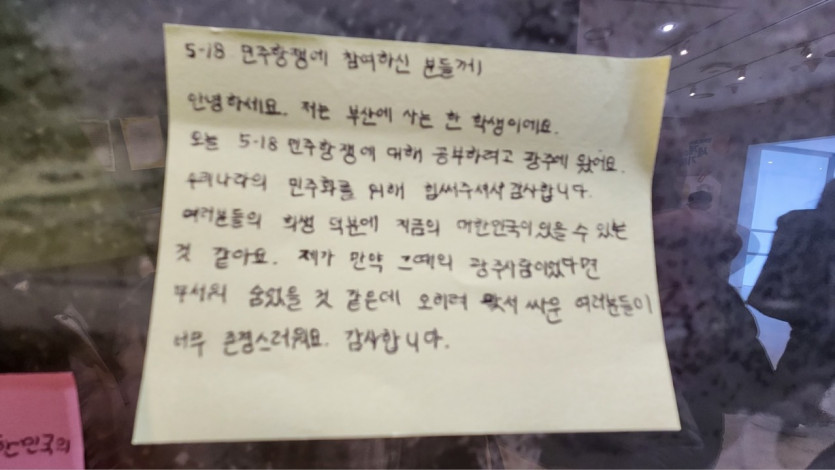 5-18 민주항쟁에 참여하신 분들께
안녕하세요. 저는 부산에 사는 한 학생이에요.
오늘 5-18 민주항쟁에 대해 공부하려고 광주에 왔어요.
우리나라의 민주화를 위해 힘써주셔서 감사합니다.
여러분들의 희생 덕분에 지금의 대한민국이 있을 수 있는
것 같아요. 제가 만약 그때의 광주사람이었다면
무서워 숨었을 것 같은데 오히려 맞서 싸운 여러분들이
너무 존경스러워요. 감사합니다.
한민국의